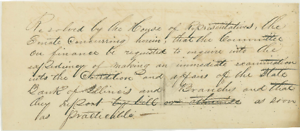 Resolved by the House of Representatives, the
Senate Concurring herein that the Committee
on finance be requested to inquire into the
expediency of making an immediate examination
into the Condition and affairs of the State
Bank of Illinois and Branches and that
they report by bill or otherwise as soon
as Practicable